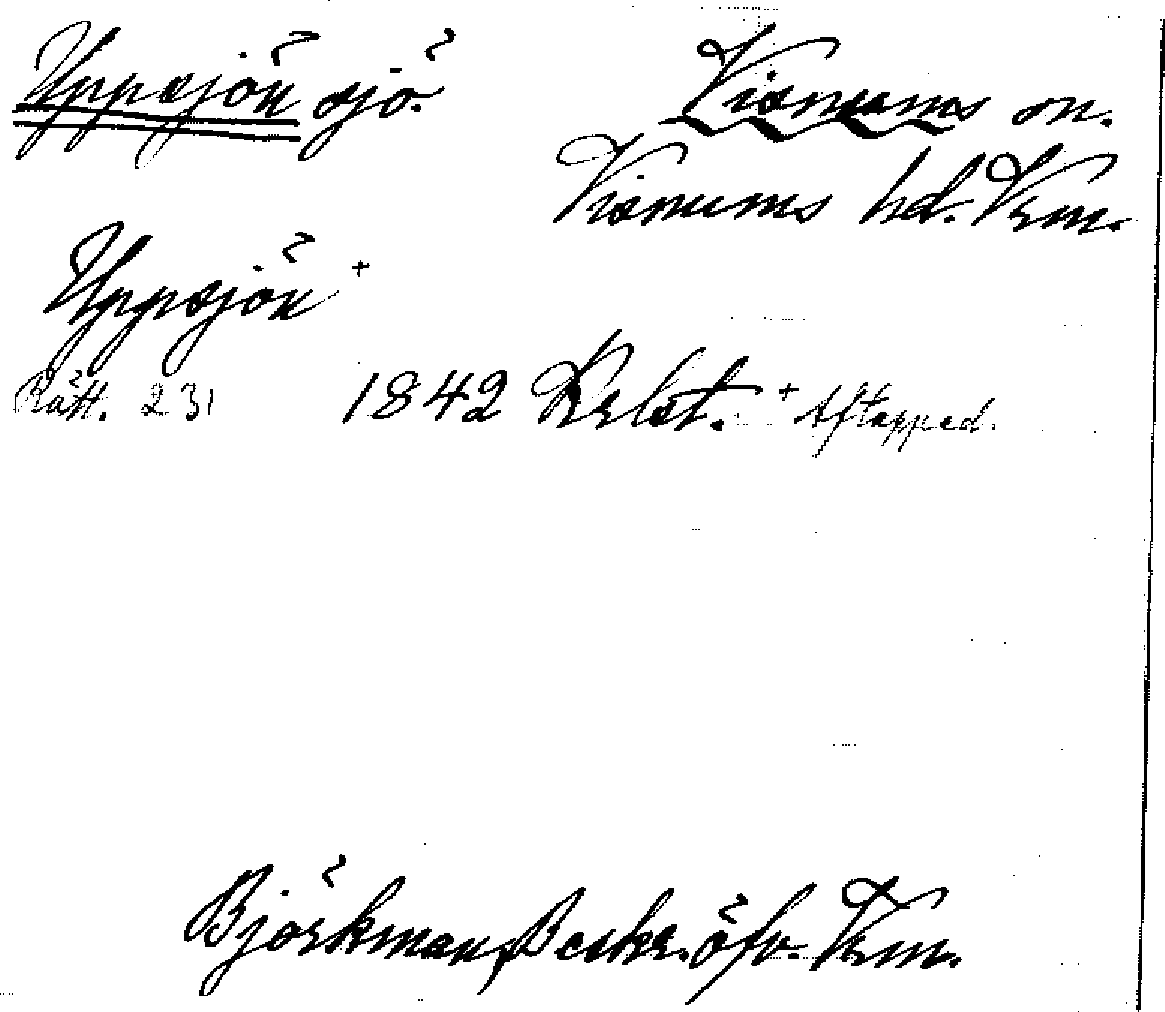 Uppsjön sjö.
Visnums sn.
Visnums hd. Vrm.
Uppsjön +
Rätt. 231 1842 Krlst. + Aftappad.
Björkman, Beskr. öfv. Vrm.